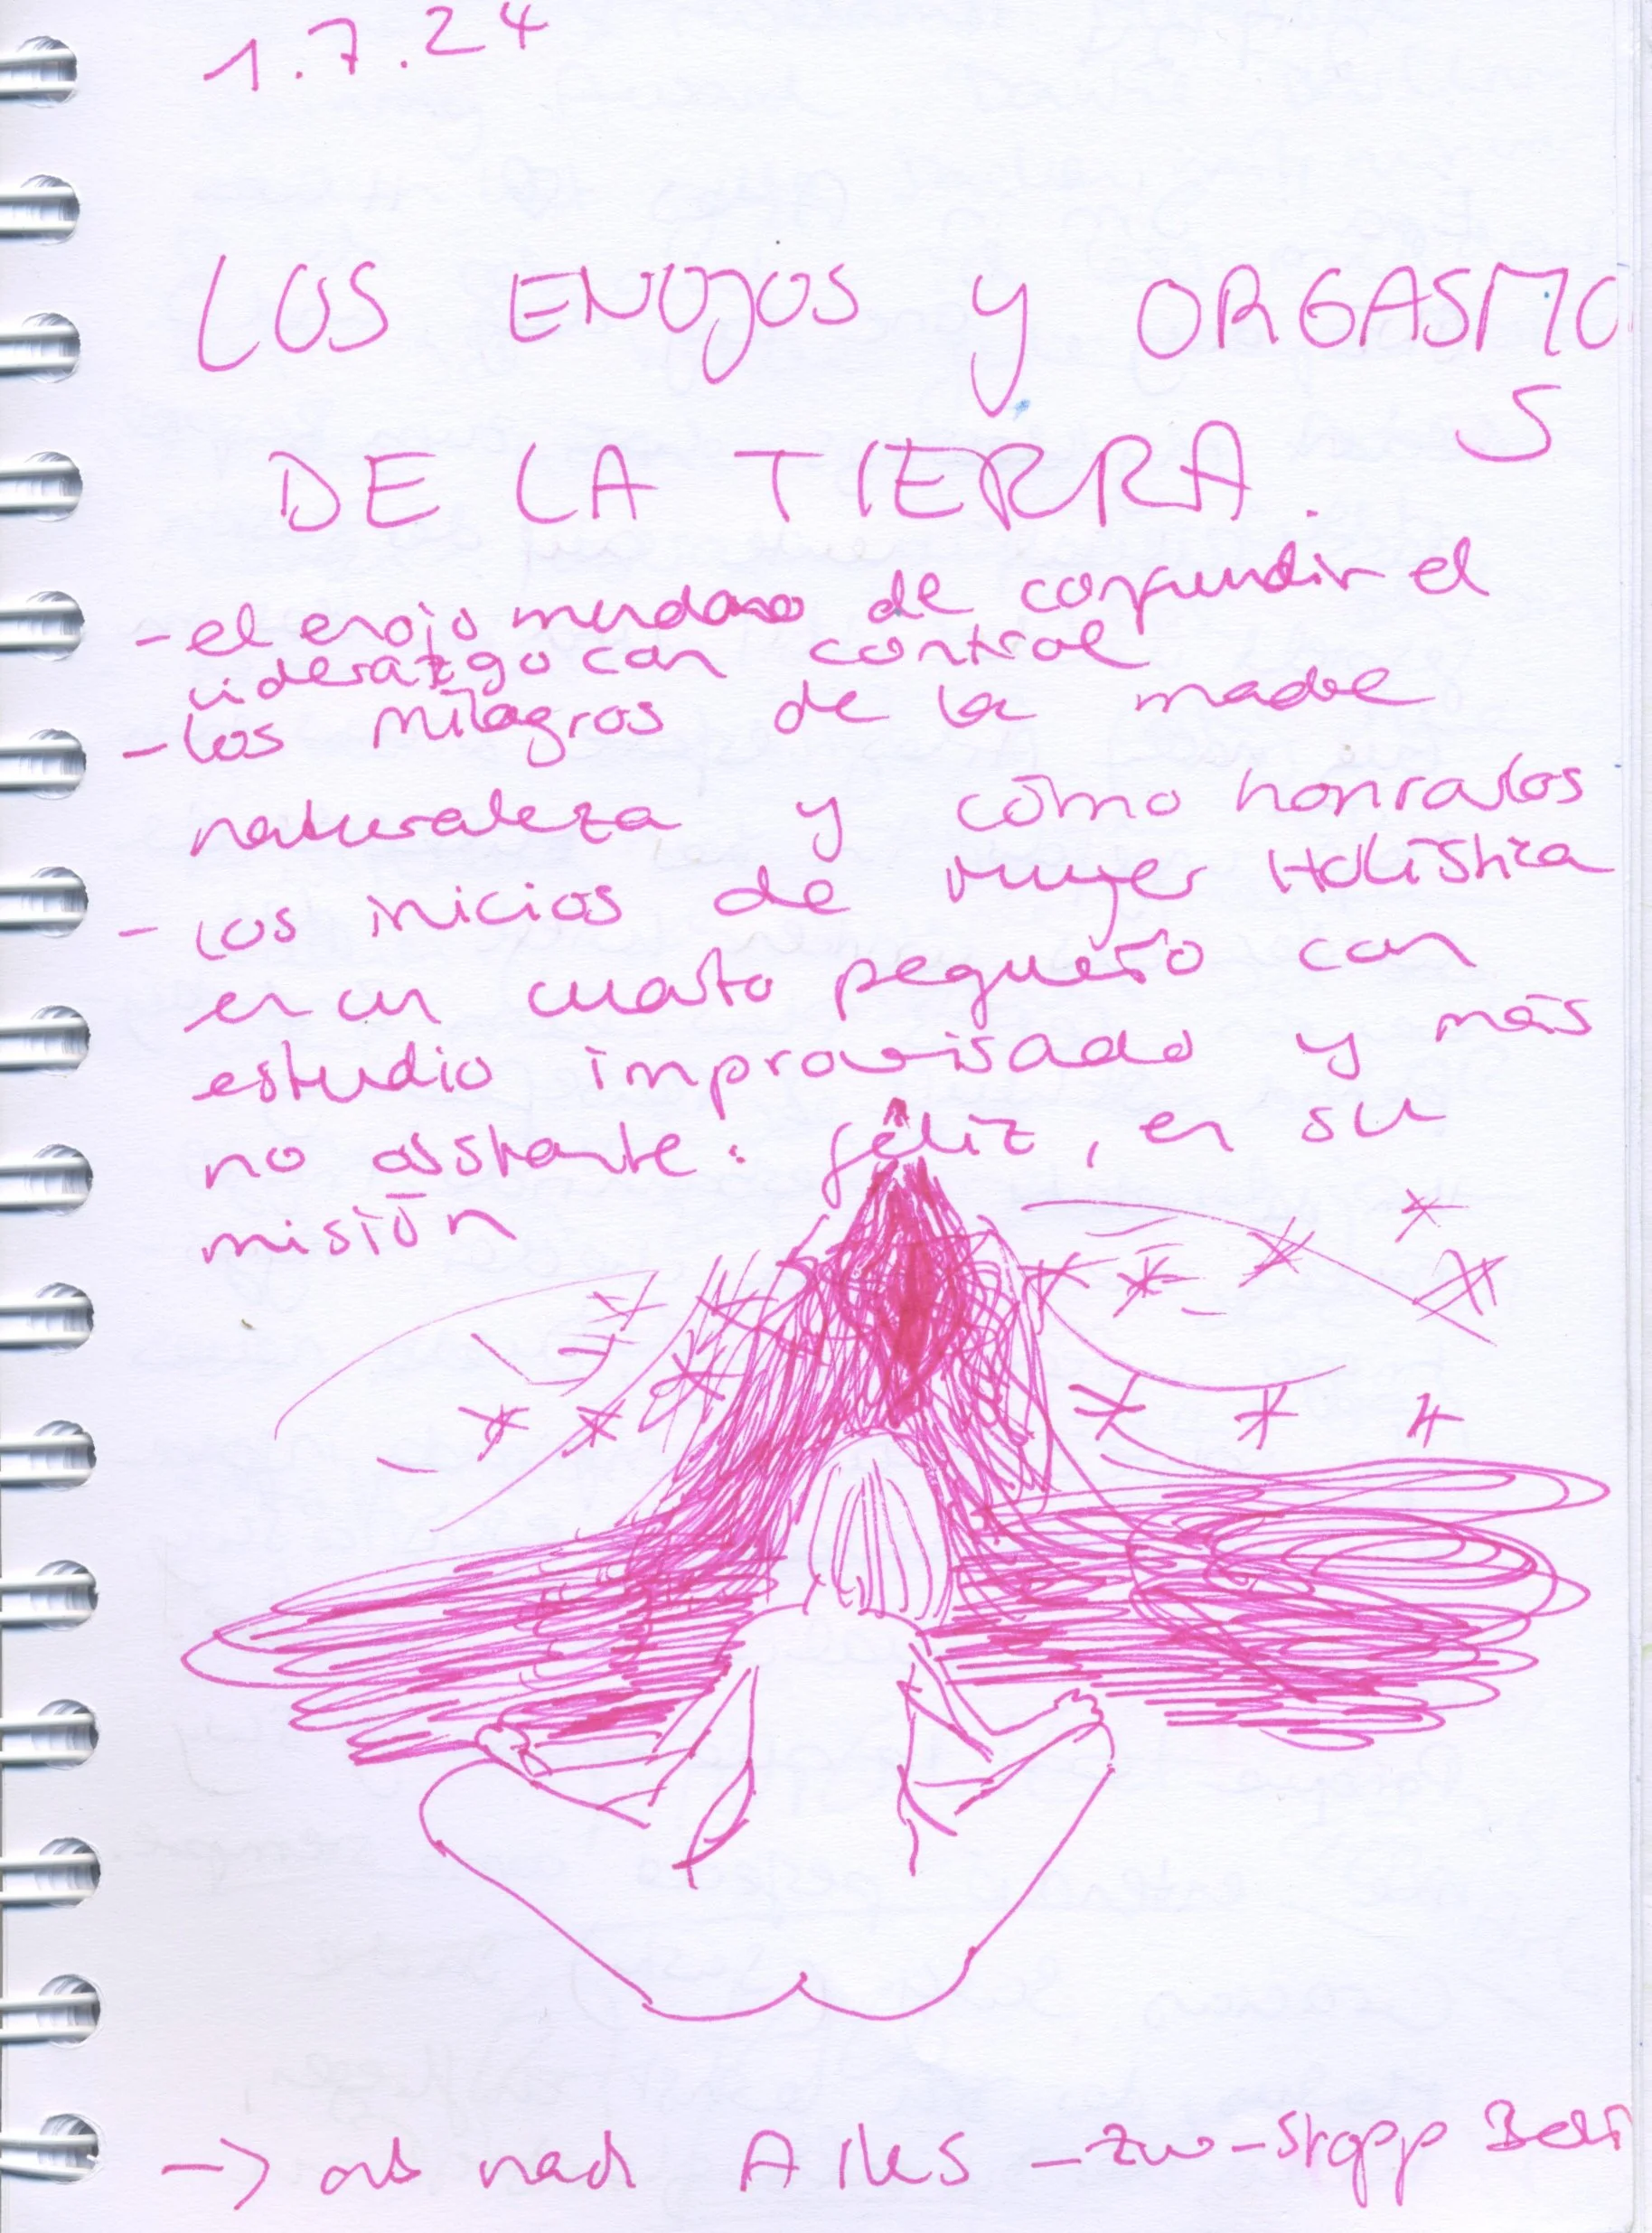 1.7.24
LOS ENOJOS y ORGASMO
S
DE LA TIERRA.
- el enojo mundano de confundir el
liderazgo con control
- los milagros de la madre
naturaleza y cómo honrarlos
- los inicios de Mujer Holística
en un cuarto pequeño con
estudio improvisado y más
no obstante: feliz, en su
misión
-> ab nach